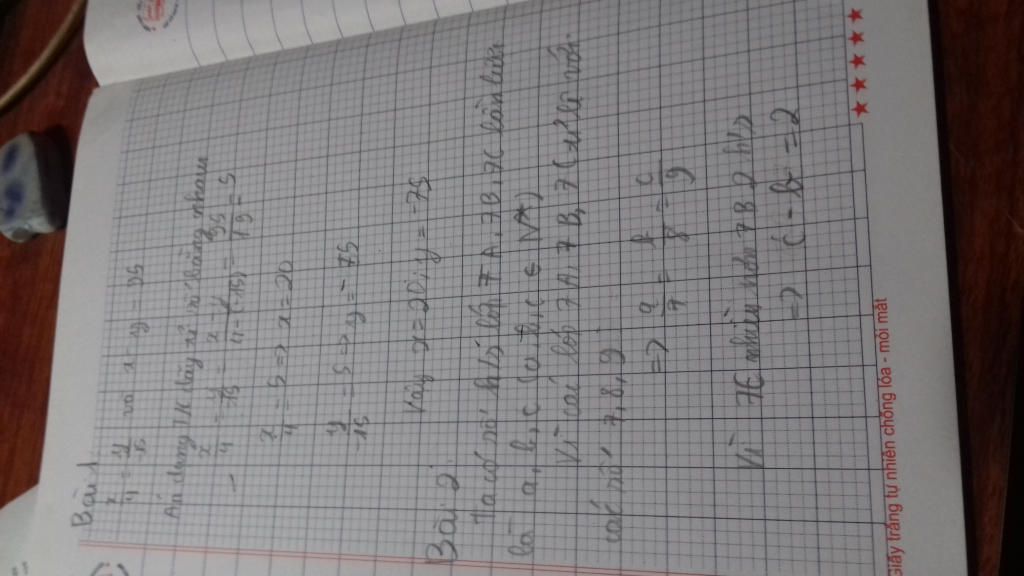 Bài 1
x/4 = y/-15 và x - y = 95
Áp dụng T/C dãy tỉ số bằng nhau
x/4 = y/-15 = x - y/4-(-15) = 95/19 = 5
x/4 = 5 => x = 20
y/-15 = 5 => y = -75
Vậy x = 20; y = -75
Bài 2
số h/s lớp 7A, 7B, 7C lần lượt
là a, b, c (a, b, c ∈ N*)
Vì các lớp 7A, 7B, 7C
các số 7, 8, 9
=> a/7 = b/8 = c/9
Vì 7C nhiều hơn 7B 2 h/s
=> c - b = 2
Giấy trắng tự nhiên chống lóa - mỏi mắt